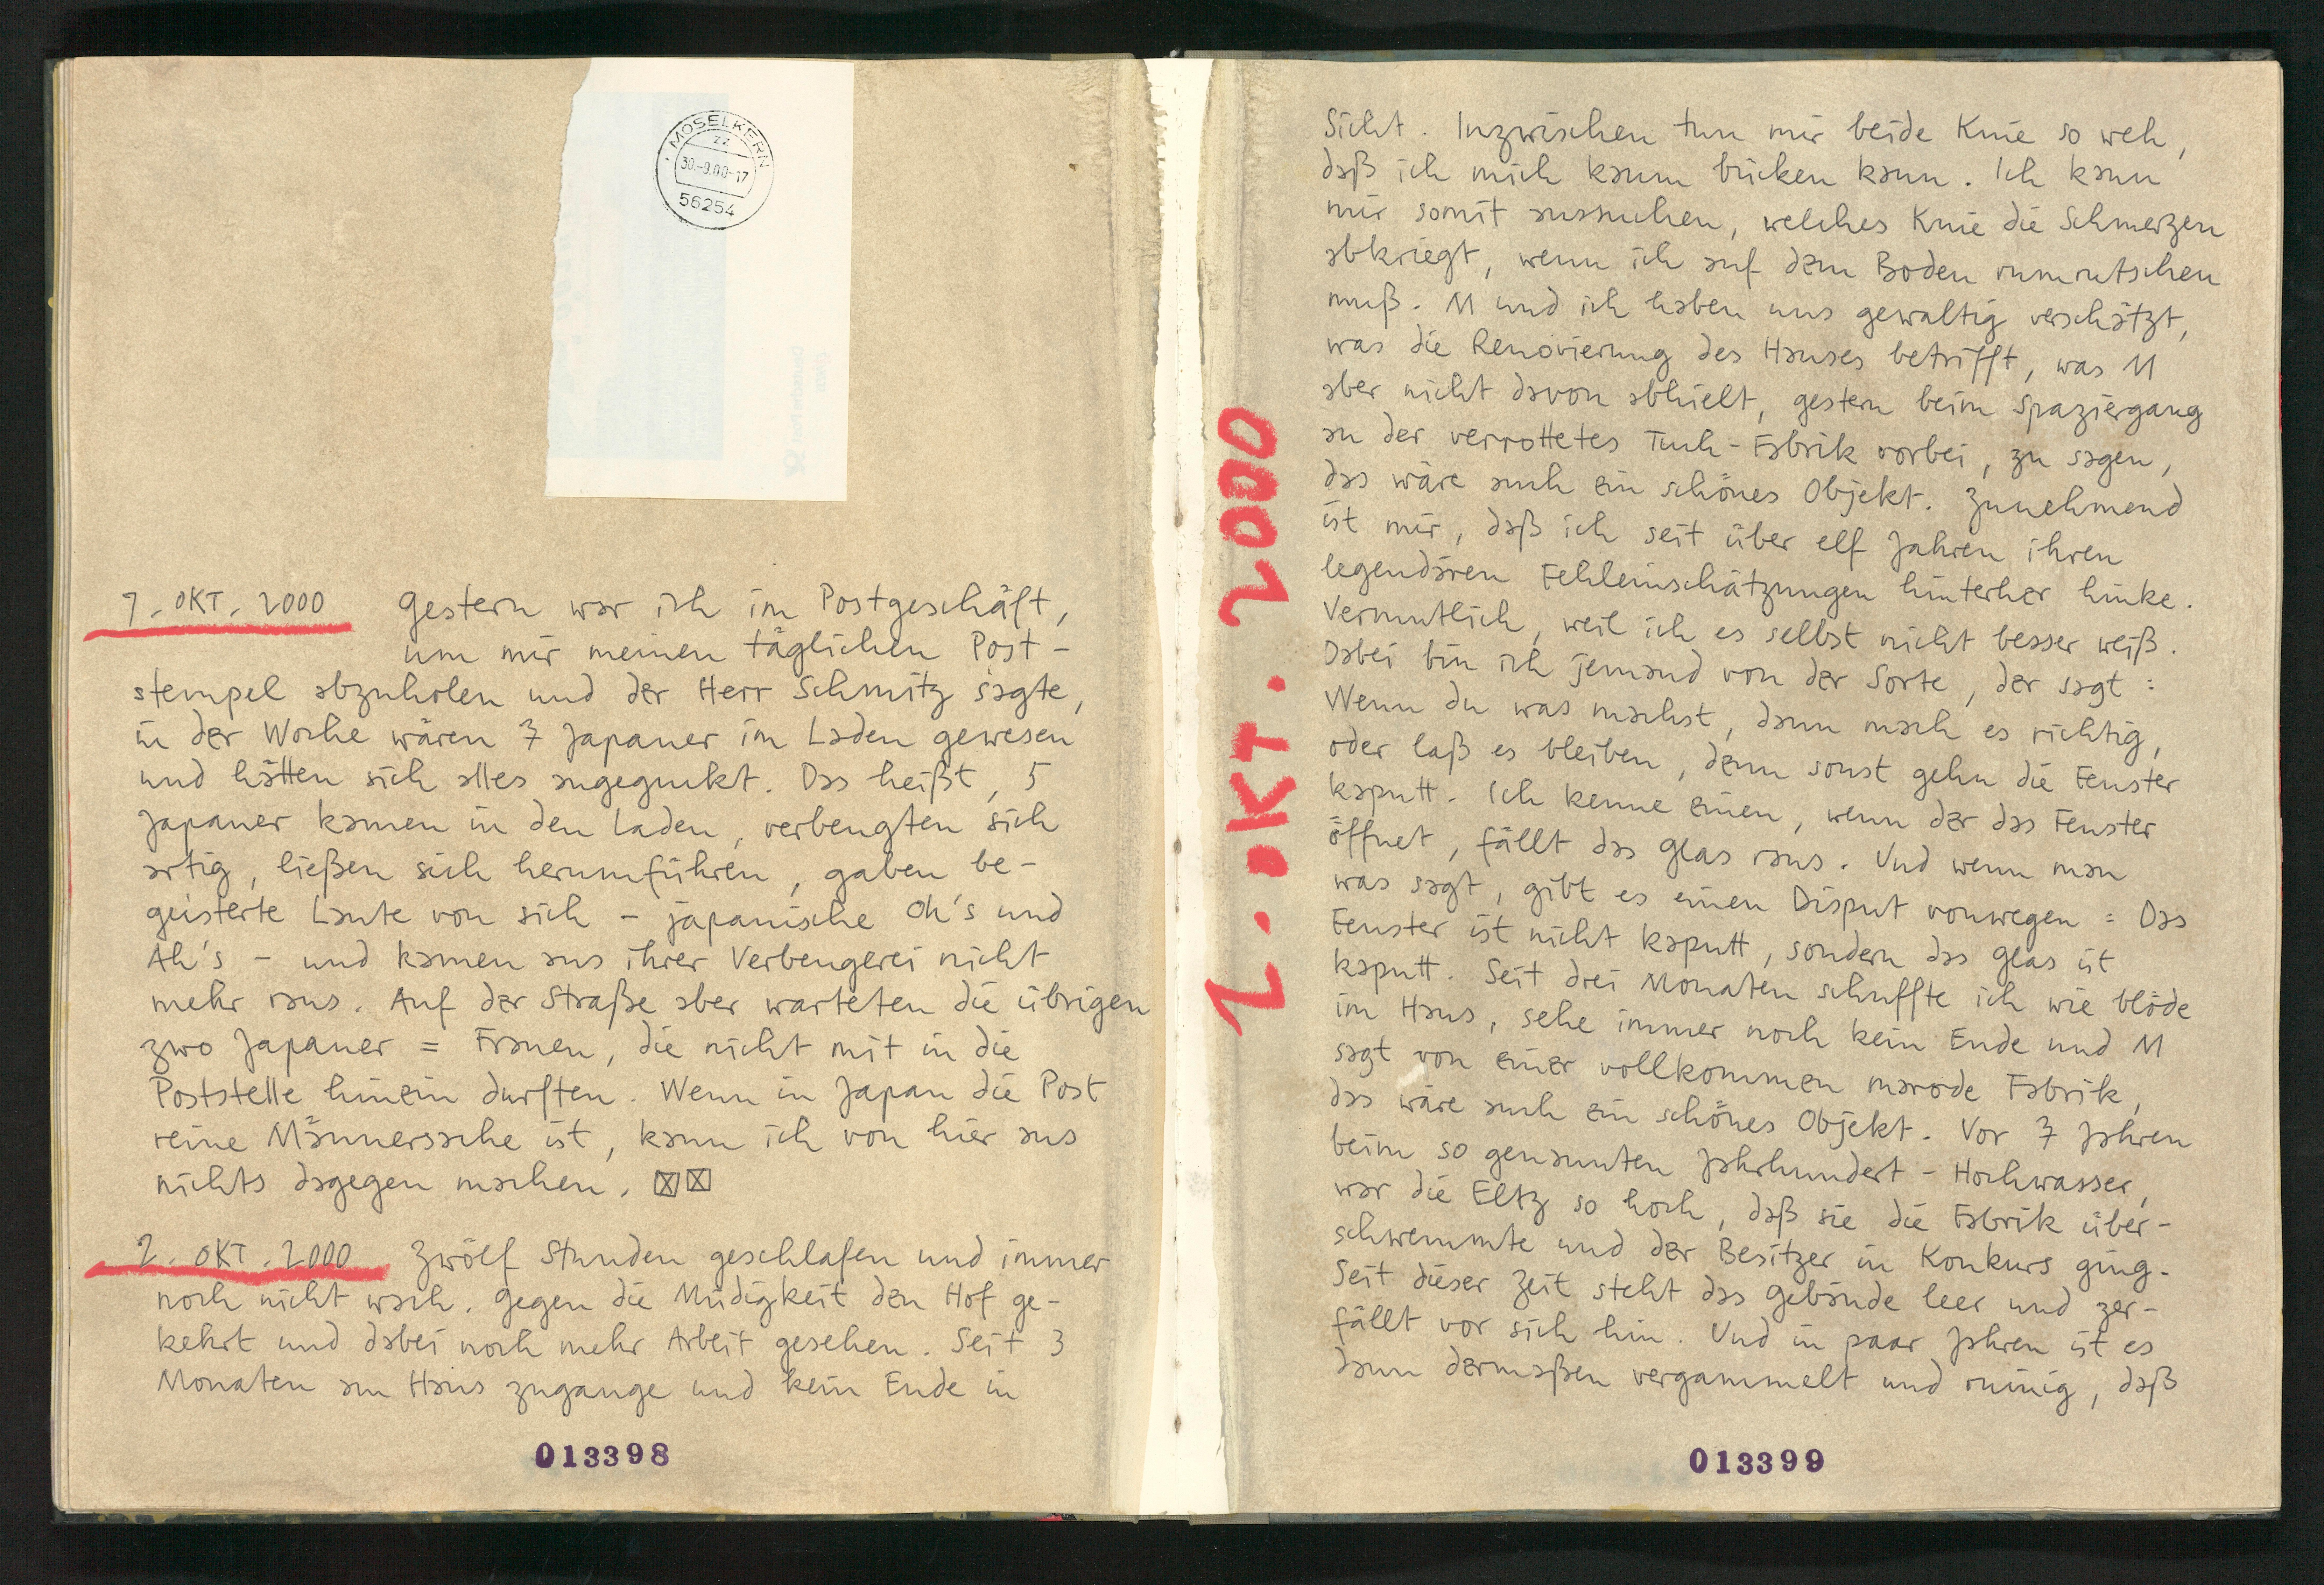 MOSELKERN
zz
30.-9.00-17
56254
1. OKT. 2000 Gestern war ich im Postgeschäft,
um mir meinen täglichen Post-
stempel abzuholen und der Herr Schmitz sagte,
in der Woche wären 7 Japaner im Laden gewesen
und hätten sich alles angeguckt. Das heißt, 5
Japaner kamen in den Laden, verbeugten sich
artig, ließen sich herumführen, gaben be-
geisterte Laute von sich - japanische Oh's und
Ah's - und kamen aus ihrer Verbeugerei nicht
mehr raus. Auf der Straße aber warteten die übrigen
zwo Japaner = Frauen, die nicht mit in die
Poststelle hinein durften. Wenn in Japan die Post
reine Männersache ist, kann ich von hier aus
nichts dagegen machen. ☒☒
2. OKT. 2000 Zwölf Stunden geschlafen und immer
noch nicht wach. Gegen die Müdigkeit den Hof ge-
kehrt und dabei noch mehr Arbeit gesehen. Seit 3
Monaten am Haus zugange und kein Ende in
013398
2. OKT. 2000
Sicht. Inzwischen tun mir beide Knie so weh,
daß ich mich kaum bücken kann. Ich kann
mir somit aussuchen, welches Knie die Schmerzen
abkriegt, wenn ich auf dem Boden rumrutschen
muß. M und ich haben uns gewaltig verschätzt,
was die Renovierung des Hauses betrifft, was M
aber nicht davon abhielt, gestern beim Spaziergang
an der verrottetes Tuch-Fabrik vorbei, zu sagen,
das wäre auch ein schönes Objekt. Zunehmend
ist mir, daß ich seit über elf Jahren ihren
legendären Fehleinschätzungen hinterher hinke.
Vermutlich, weil ich es selbst nicht besser weiß.
Dabei bin ich jemand von der Sorte, der sagt:
Wenn du was machst, dann mach es richtig,
oder laß es bleiben, denn sonst gehn die Fenster
kaputt. Ich kenne einen, wenn der das Fenster
öffnet, fällt das Glas raus. Und wenn man
was sagt, gibt es einen Disput vonwegen: Das
Fenster ist nicht kaputt, sondern das Glas ist
kaputt. Seit drei Monaten schuffte ich wie blöde
im Haus, sehe immer noch kein Ende und M
sagt von einer vollkommen marode Fabrik,
das wäre auch ein schönes Objekt. Vor 7 Jahren
beim so genannten Jahrhundert-Hochwasser,
war die Eltz so hoch, daß sie die Fabrik über-
schwemmte und der Besitzer in Konkurs ging.
Seit dieser Zeit steht das Gebäude leer und zer-
fällt vor sich hin. Und in paar Jahren ist es
dann dermaßen vergammelt und ruinig, daß
013399